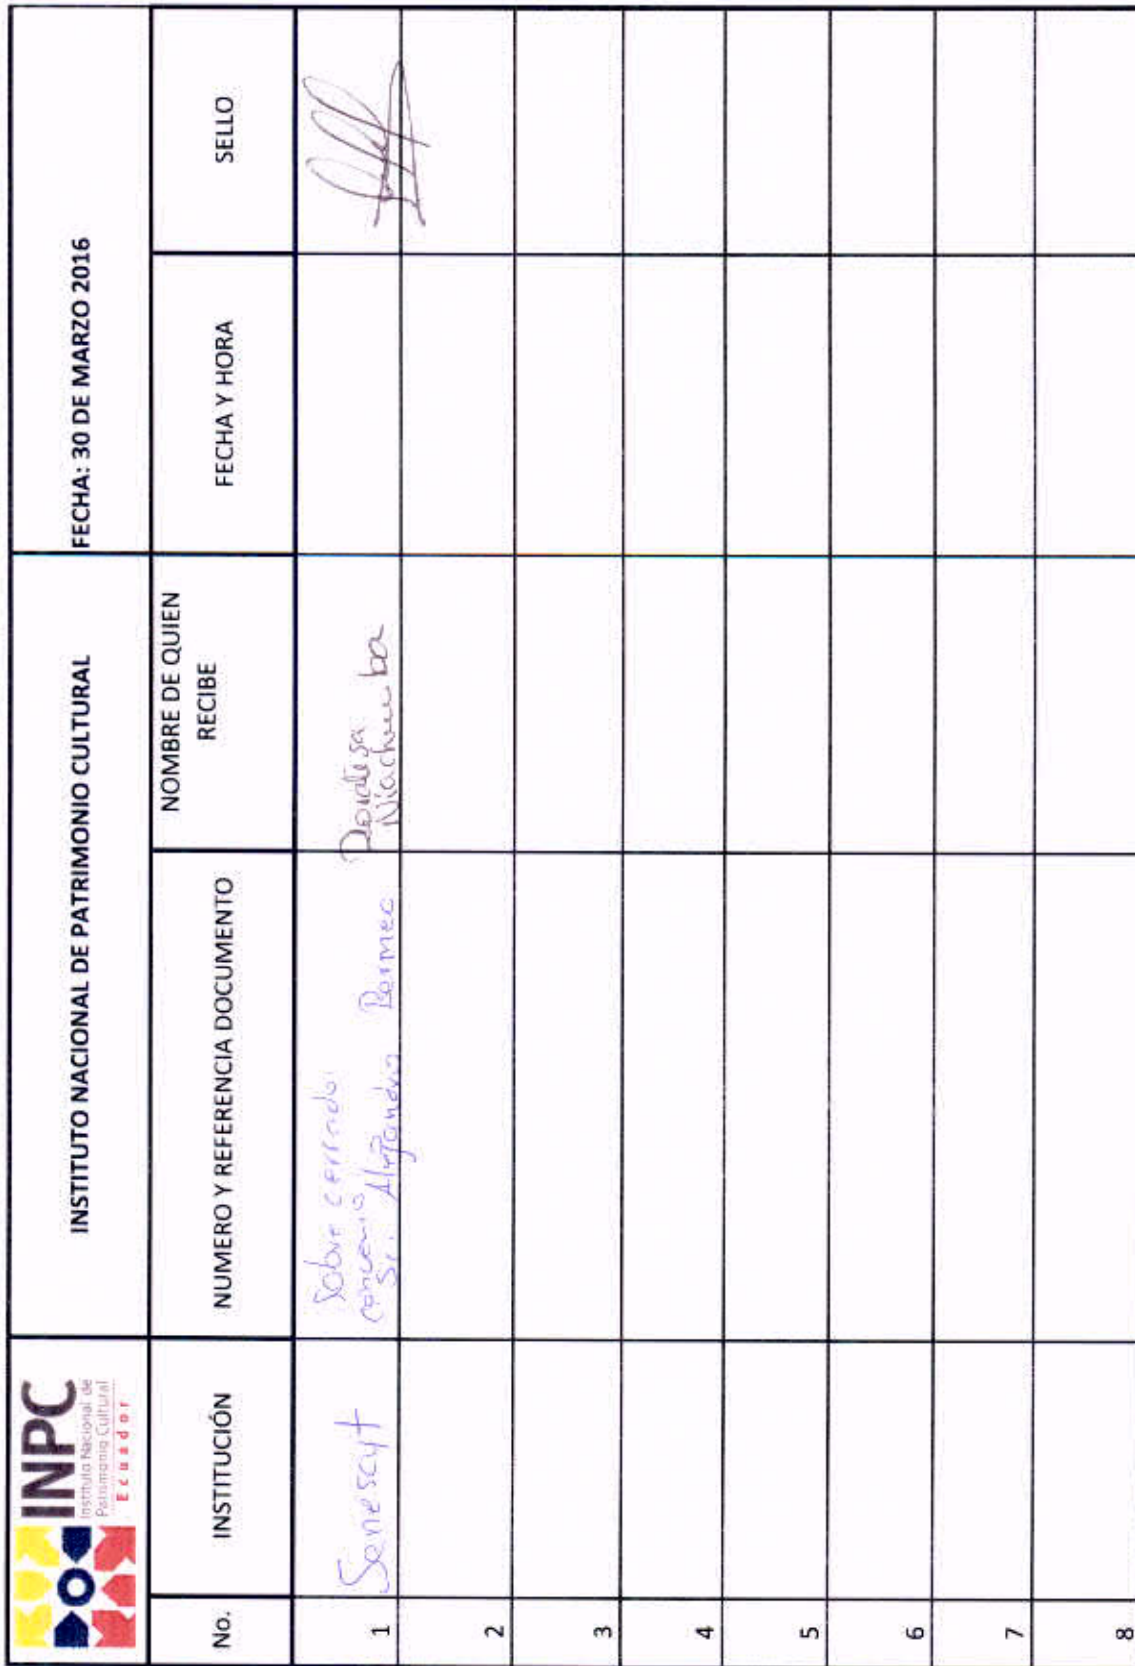 INPC
Instituto Nacional de
Patrimonio Cultural
Ecuador
INSTITUTO NACIONAL DE PATRIMONIO CULTURAL
FECHA: 30 DE MARZO 2016
No.
INSTITUCIÓN
NUMERO Y REFERENCIA DOCUMENTO
NOMBRE DE QUIEN
RECIBE
FECHA Y HORA
SELLO
1
Senescyt
Sobre cerrado
convenio
Sr. Alejandro Bermeo
2
3
4
5
6
7
8